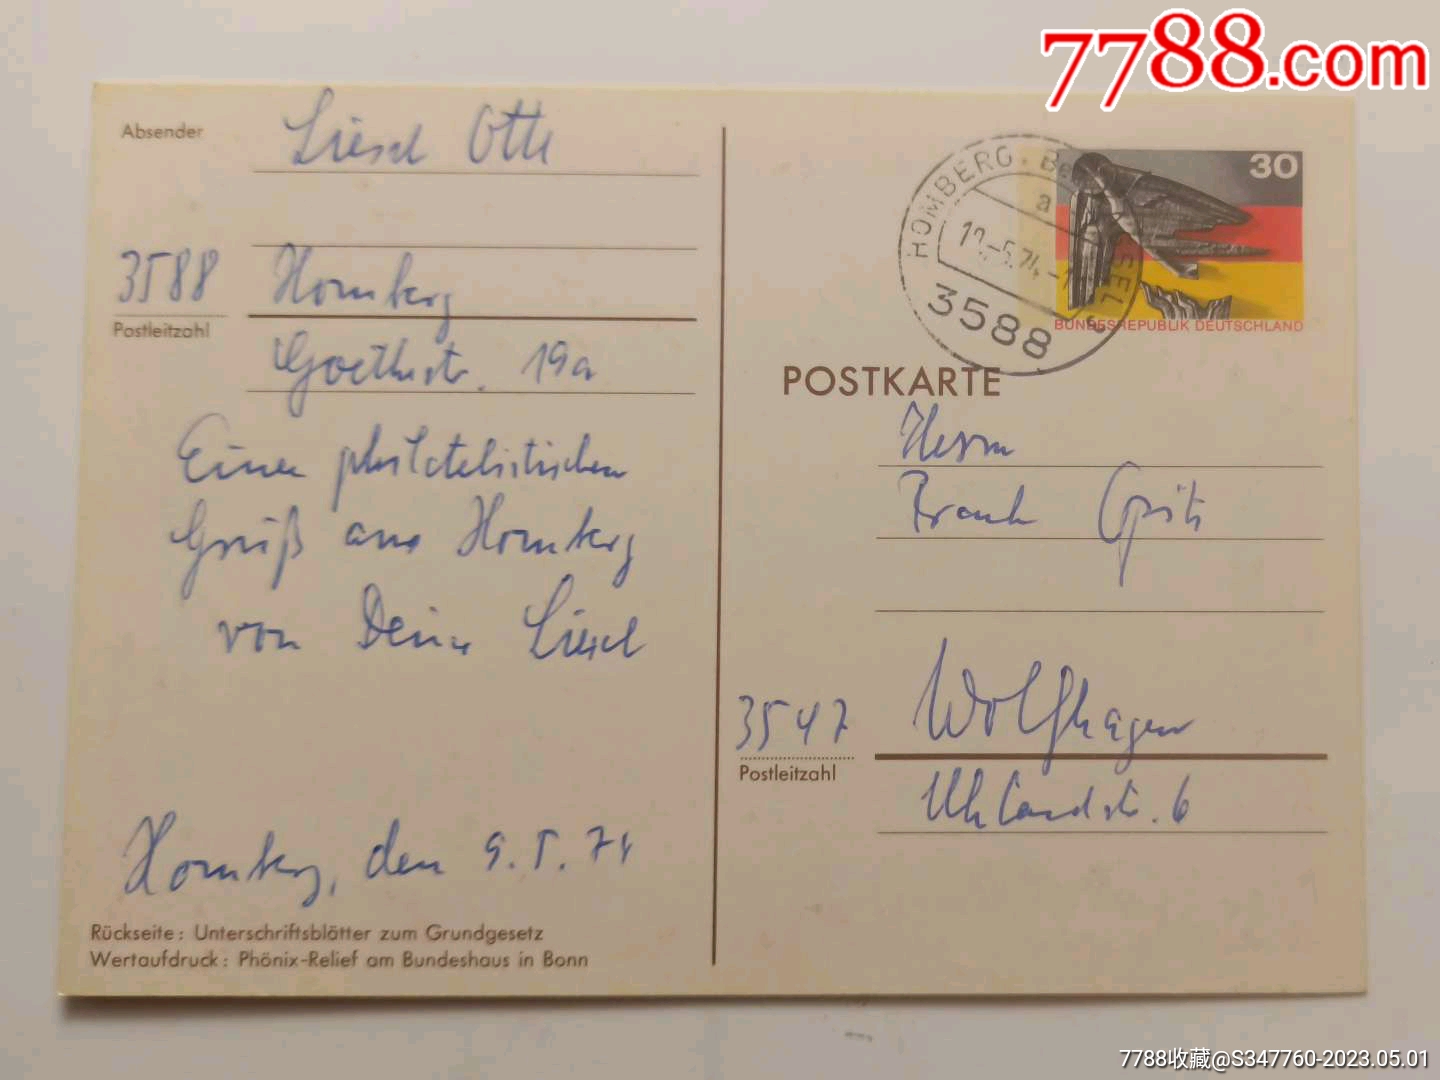 7788.com
Absender
Liesel Otte
3588 Homberg
Postleitzahl
Goethestr. 19a
Einen philatelistischen
Gruß aus Homberg
von Deiner Liesel
Homberg, den 9.5.74
Rückseite: Unterschriftsblätter zum Grundgesetz
Wertaufdruck: Phönix-Relief am Bundeshaus in Bonn
HOMBERG
a
3588
30
BUNDESREPUBLIK DEUTSCHLAND
POSTKARTE
Herrn
Frank Opitz
3547 Wolfhagen
Postleitzahl
Uhlandstr. 6
7788收藏@S347760-2023.05.01